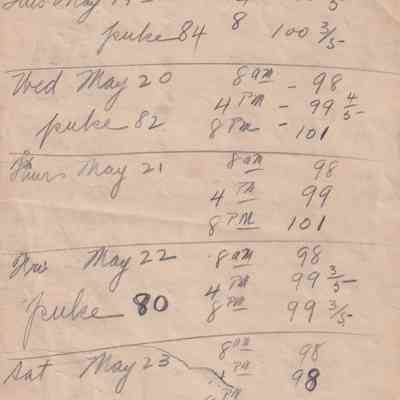 Tues May 19
puke 84 8 100 3/5
Wed May 20 8 am - 98
4 PM - 99 4/5
puke 82 8 PM - 101
Thurs May 21 8 am 98
4 PM 99
8 PM 101
Fri May 22 8 am 98
4 PM 99 3/5
puke 80 8 PM 99 3/5
Sat May 23 8 am 98
PM 98
PM